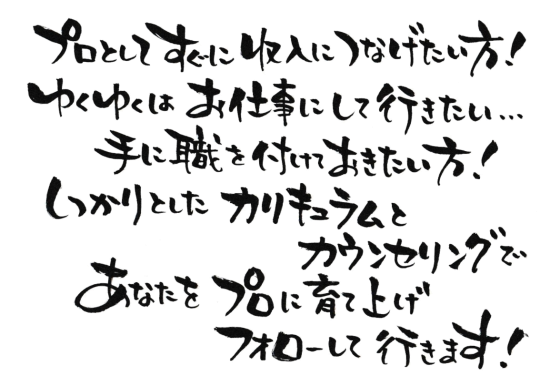 プロとしてすぐに収入につなげたい方！
ゆくゆくは お仕事にして行きたい…
手に職を付けておきたい方！
しっかりとした カリキュラムと
カウンセリングで
あなたを プロに育て上げ
フォローして行きます！